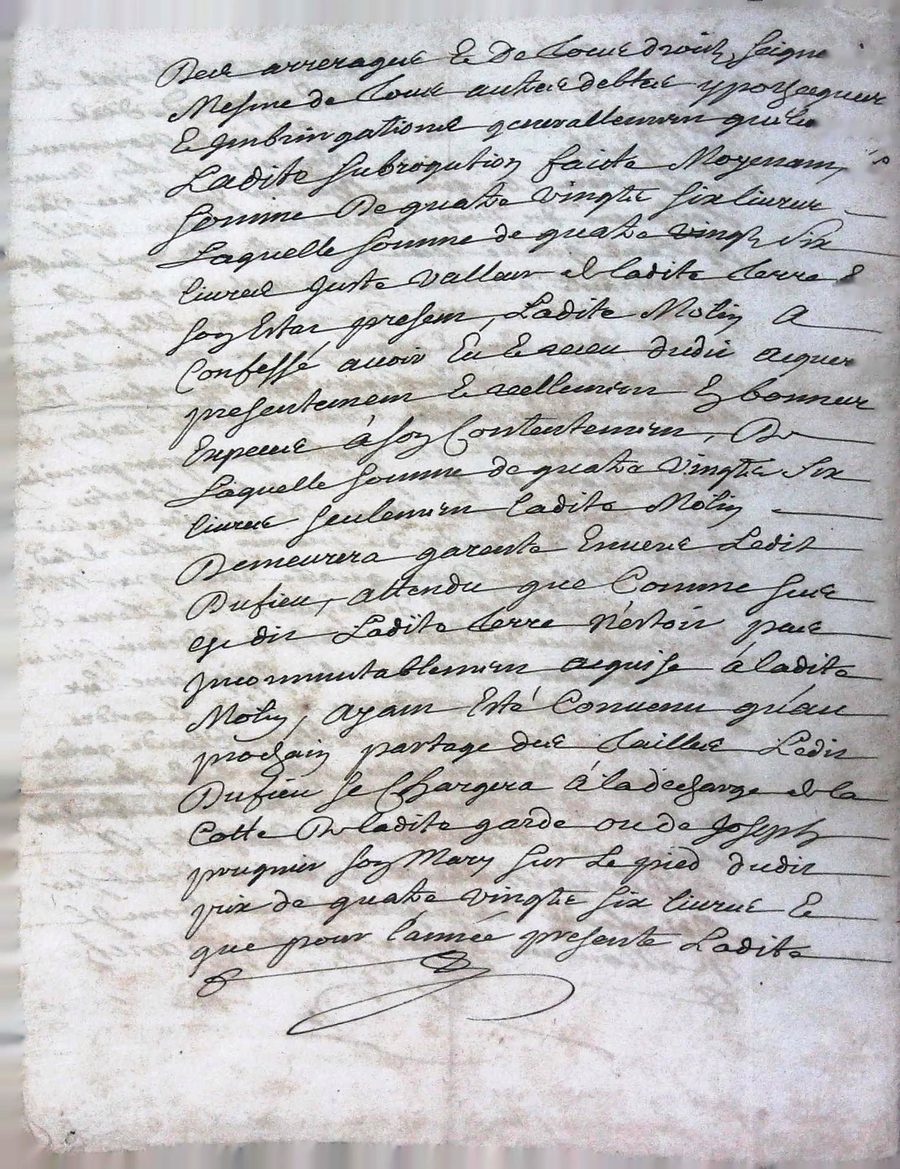 Des arrerages Et De Tous droits seigne
Mesme de Tous autres debtes ypotecques
Et Jmbringations generallement quels
Ladite Subrogation faite Moyenant
somme De quatre vingts six livres
Laquelle somme de quatre vingts six
livres Juste valleur de ladite terre
son Estat present, Ladite Molin A
Confessé avoir Eu Et receu dudit acquer
presentement Et reellement En bonnes
Especes à son Contentement, De
Laquelle somme de quatre vingts six
livres seulement ladite Molin
Demeurera garente Envers Ledit
Dufieu, attendu que Comme sus
est dit Ladite terre n'estoit pas
jncommutablement acquise à ladite
Molin, ayant Esté Convenu qu'au
prochain partage des tailles Ledit
Dufieu se Chargera à la decharge de la
Cotte De ladite garde ou de Joseph
prugnier son Mary sur Le pied dudit
prix de quatre vingts six livres Et
que pour l'année presente Ladite